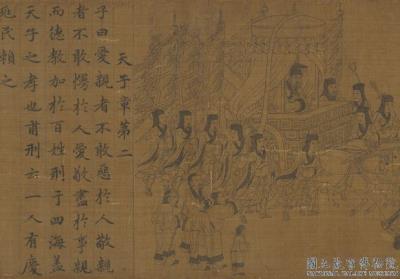 天子章第二
子曰愛親者不敢惡於人敬親
者不敢慢於人愛敬盡於事親
而德教加於百姓刑于四海蓋
天子之孝也甫刑云一人有慶
兆民賴之
國立故宮博物院